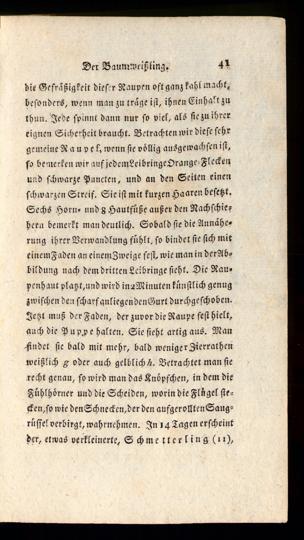 Der Baumweißling. 41
die Gefräßigkeit dieser Raupen oft ganz kahl macht,
besonders, wenn man zu träge ist, ihnen Einhalt zu
thun. Jede spinnt dann nur so viel, als sie zu ihrer
eignen Sicherheit braucht. Betrachten wir diese sehr
gemeine Raupe, wenn sie völlig ausgewachsen ist,
so bemerken wir auf jedem Leibringe Orange-Flecken
und schwarze Puncten, und an den Seiten einen
schwarzen Streif. Sie ist mit kurzen Haaren besetzt.
Sechs Horn- und 8 Hautfüße außer den Nachschie-
bern bemerkt man deutlich. Sobald sie die Annähe-
rung ihrer Verwandlung fühlt, so bindet sie sich mit
einem Faden an einem Zweige fest, wie man in der Ab-
bildung nach dem dritten Leibringe sieht. Die Rau-
penhaut platzt, und wird in 2 Minuten künstlich genug
zwischen den scharf anliegenden Gurt durchgeschoben.
Jetzt muß der Faden, der zuvor die Raupe fest hielt,
auch die Puppe halten. Sie sieht artig aus. Man
findet sie bald mit mehr, bald weniger Zierrathen
weißlich g oder auch gelblich h. Betrachtet man sie
recht genau, so wird man das Knöpfchen, in dem die
Fühlhörner und die Scheiden, worin die Flügel ste-
cken, so wie den Schnecken, der den aufgerollten Saug-
rüssel verbirgt, wahrnehmen. In 14 Tagen erscheint
der, etwas verkleinerte, Schmetterling (11),